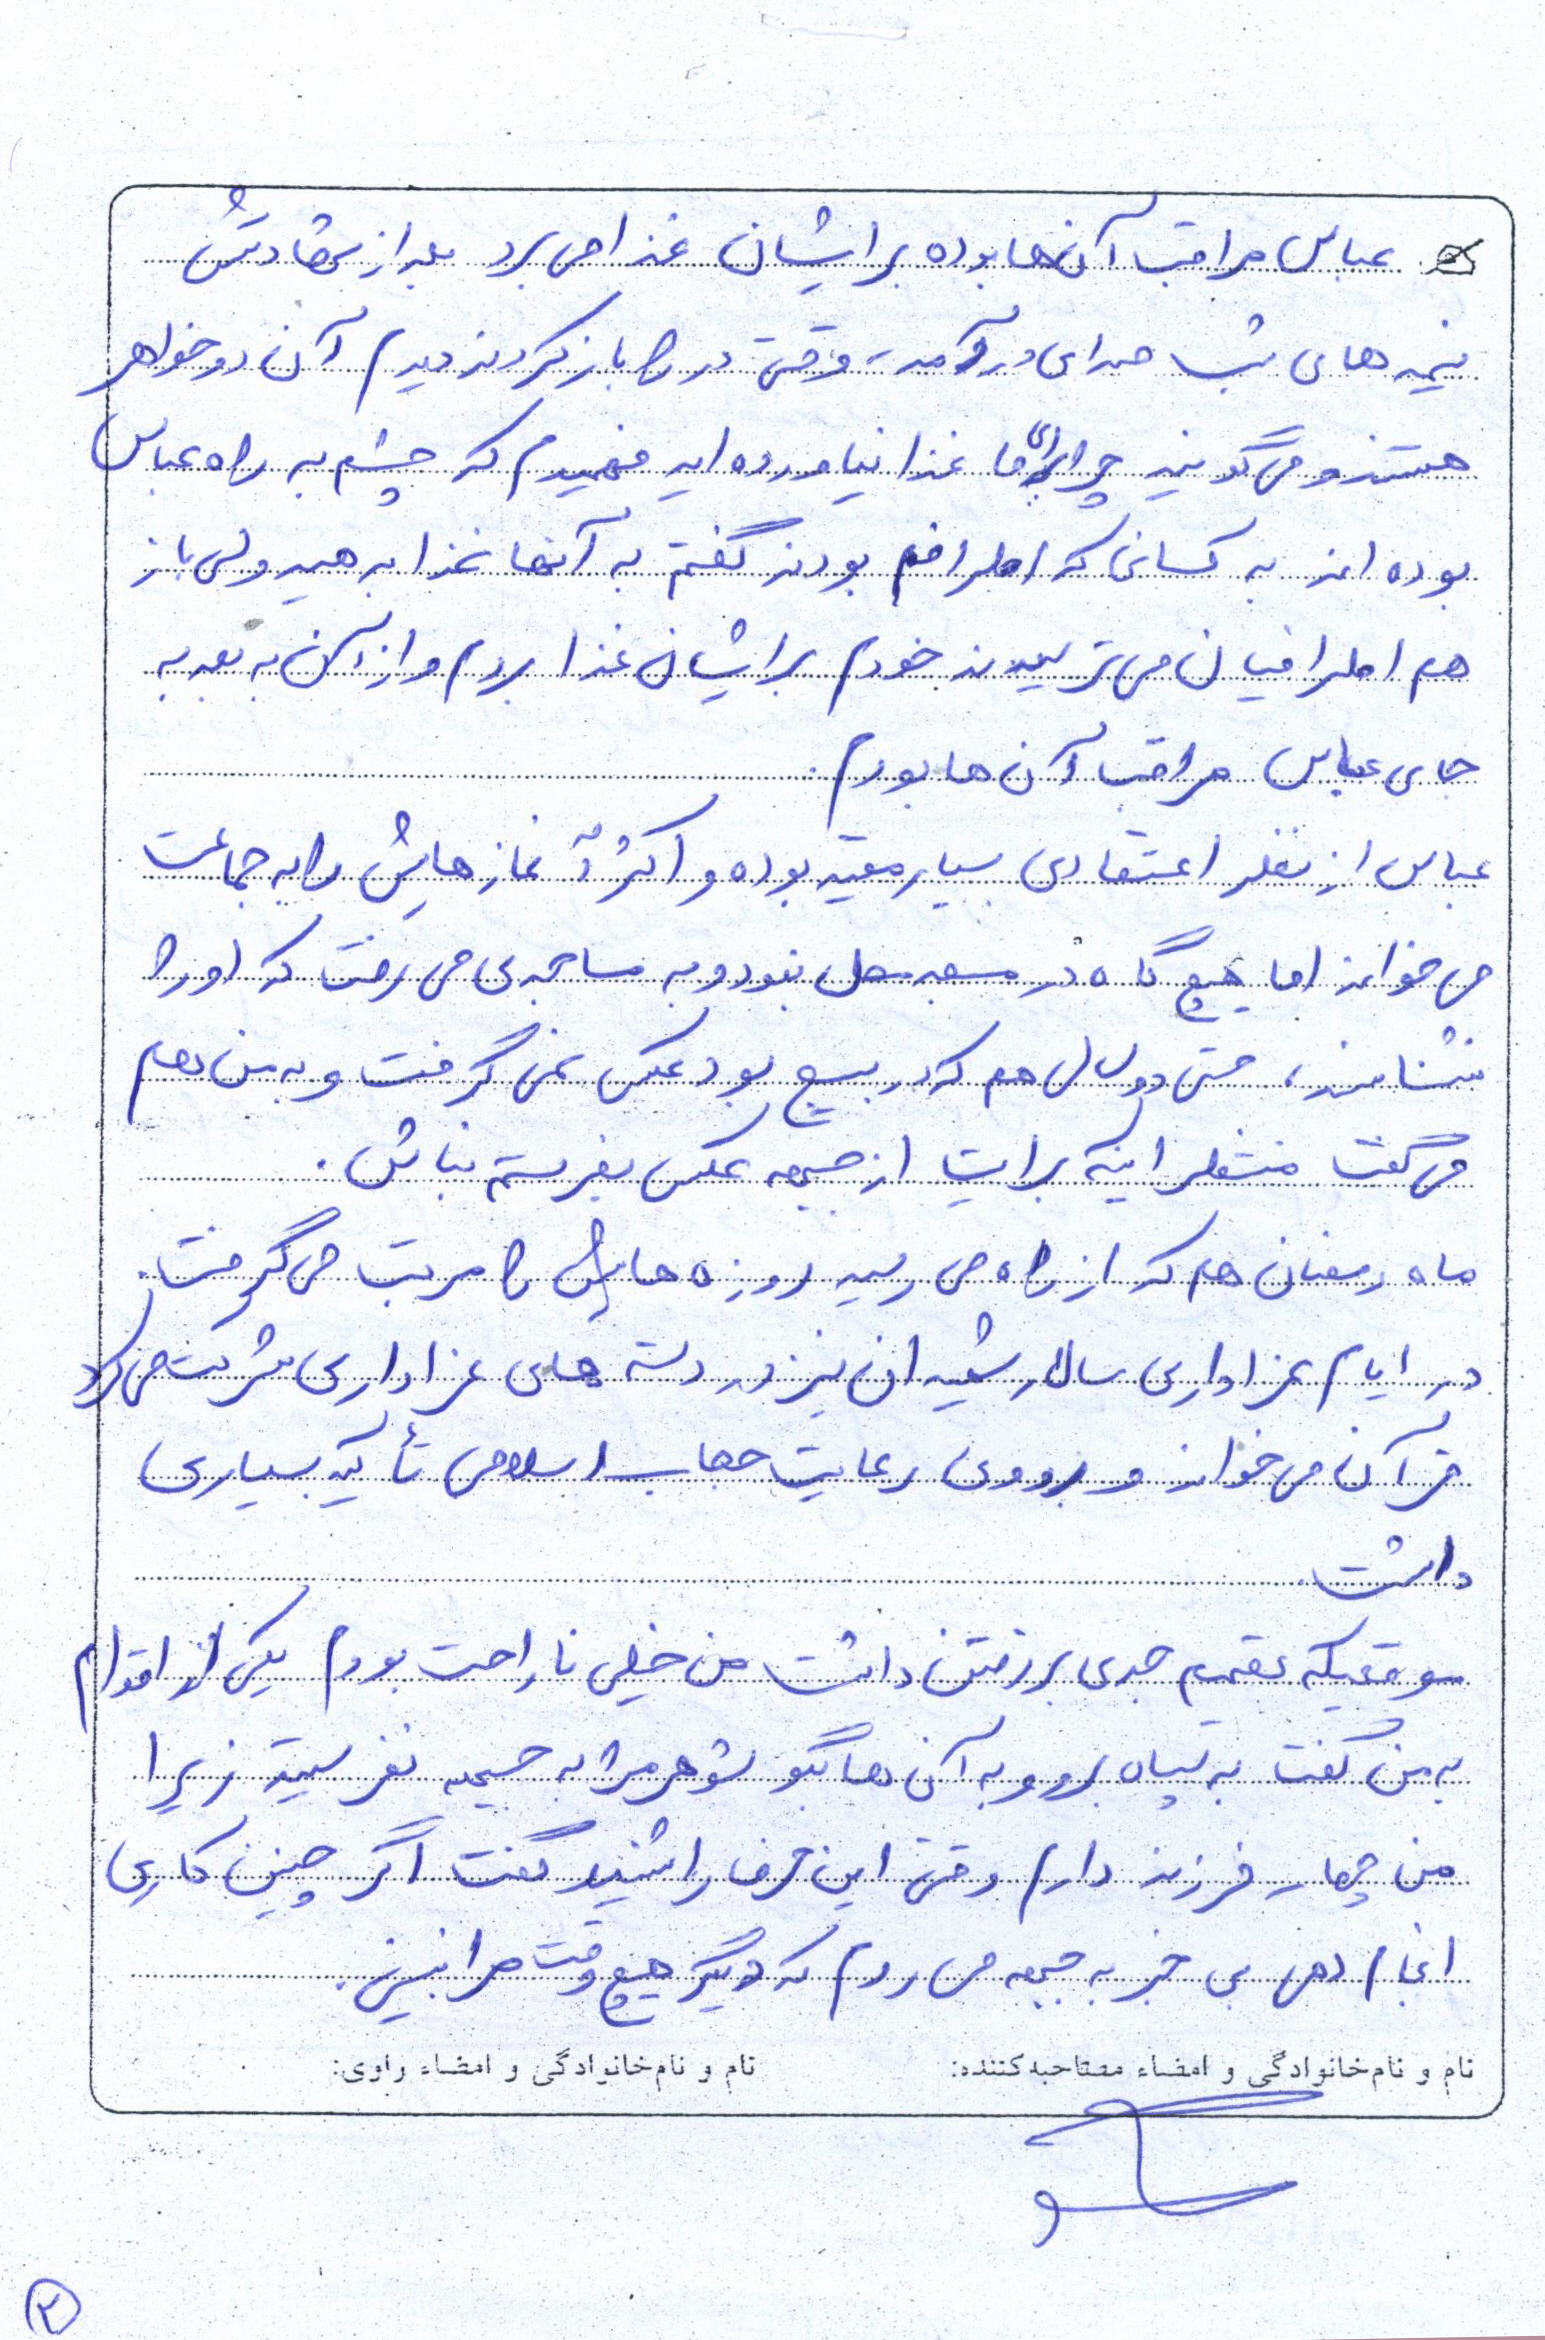 عباس مراقب آن‌ها بوده برایشان غذا می برد بعد از شهادتش
نیمه های شب صدای در آمد وقتی در را باز کردند دیدم آن دو خواهر
هستند و می گویند چرا برای ما غذا نیاورده اید فهمیدم که چشم به راه عباس
بوده اند به کسانی که اطرافم بودند گفتم به آنها غذا بدهید ولی باز
هم اطرافیان می ترسیدند خودم برایشان غذا بردم و از آن به بعد به
جای عباس مراقب آن ها بودم.
عباس از نظر اعتقادی بسیار مقید بوده و اکثراً نمازهایش را به جماعت
می خواند اما هیچ گاه در مسجد محل نبود و به مساجدی می رفت که او را
نشناسند، حتی دو سال هم که در بسیج بود عکس نمی گرفت و به من هم
می گفت منتظر اینکه برایت از جبهه عکس بفرستم نباش.
ماه رمضان هم که از راه می رسید روزه هایش را مرتب می گرفت.
در ایام عزاداری سالار شهیدان نیز در دسته های عزاداری شرکت می کرد
قرآن می خواند و بر روی رعایت حجاب اسلامی تأکید بسیاری
داشت.
موقعیکه تصمیم جدی بر رفتن داشت من خیلی ناراحت بودم یکی از اقوام
به من گفت به سپاه برو و به آن ها بگو شوهر مرا به جبهه نفرستید زیرا
من چهار فرزند دارم وقتی این حرف را شنید گفت اگر چنین کاری
انجام دهی بی خبر به جبهه می روم که دیگر هیچ وقت مرا نبینی.
نام و نام‌خانوادگی و امضاء مصاحبه‌کننده: نام و نام‌خانوادگی و امضاء راوی:
۲